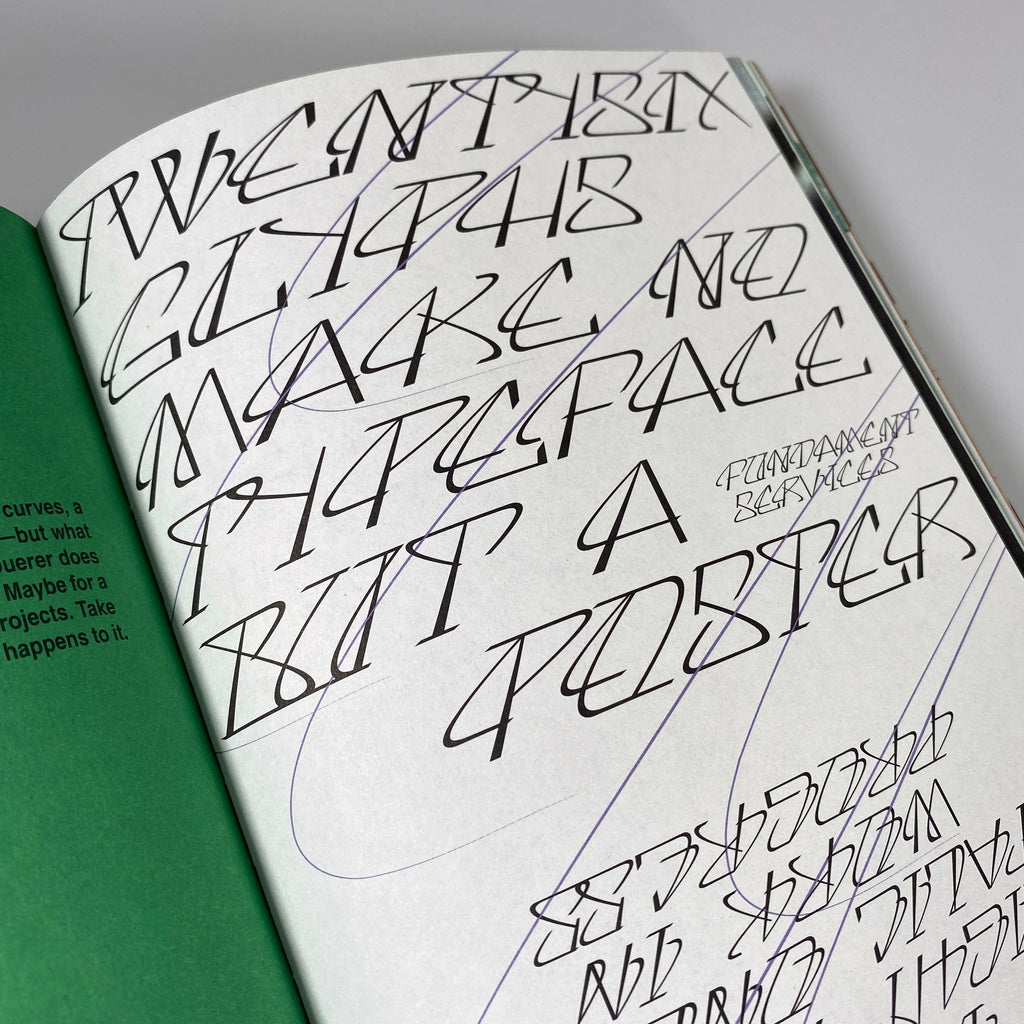 curves, a
—but what
uerer does
Maybe for a
rojects. Take
happens to it.
TWENTYSIX
GLYPHS
MAKE NO
TYPEFACE
BUT A
POSTER
FUNDAMENT
SERVICES
PROGRESS
WORK
IN